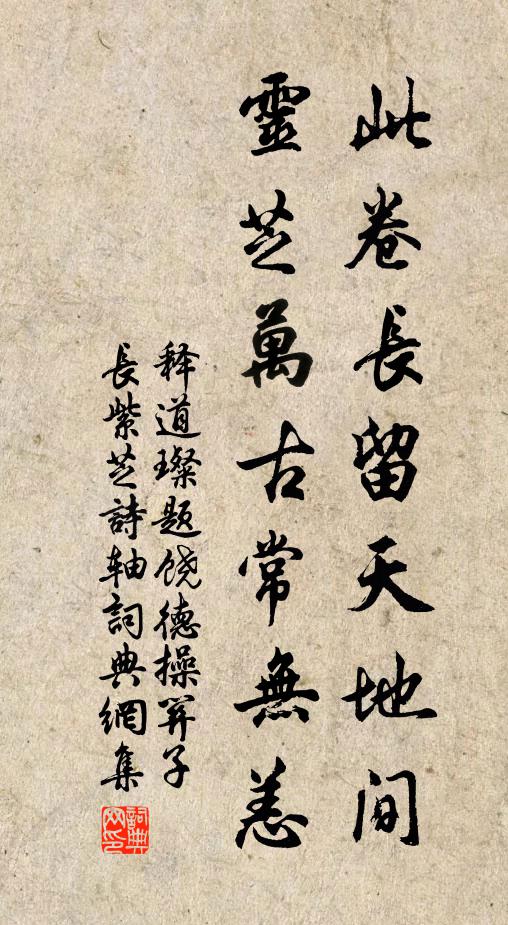 此卷長留天地间
靈芝萬古常無恙
释道璨题饶德操子
長紫芝詩轴詞典網集
詞典网印